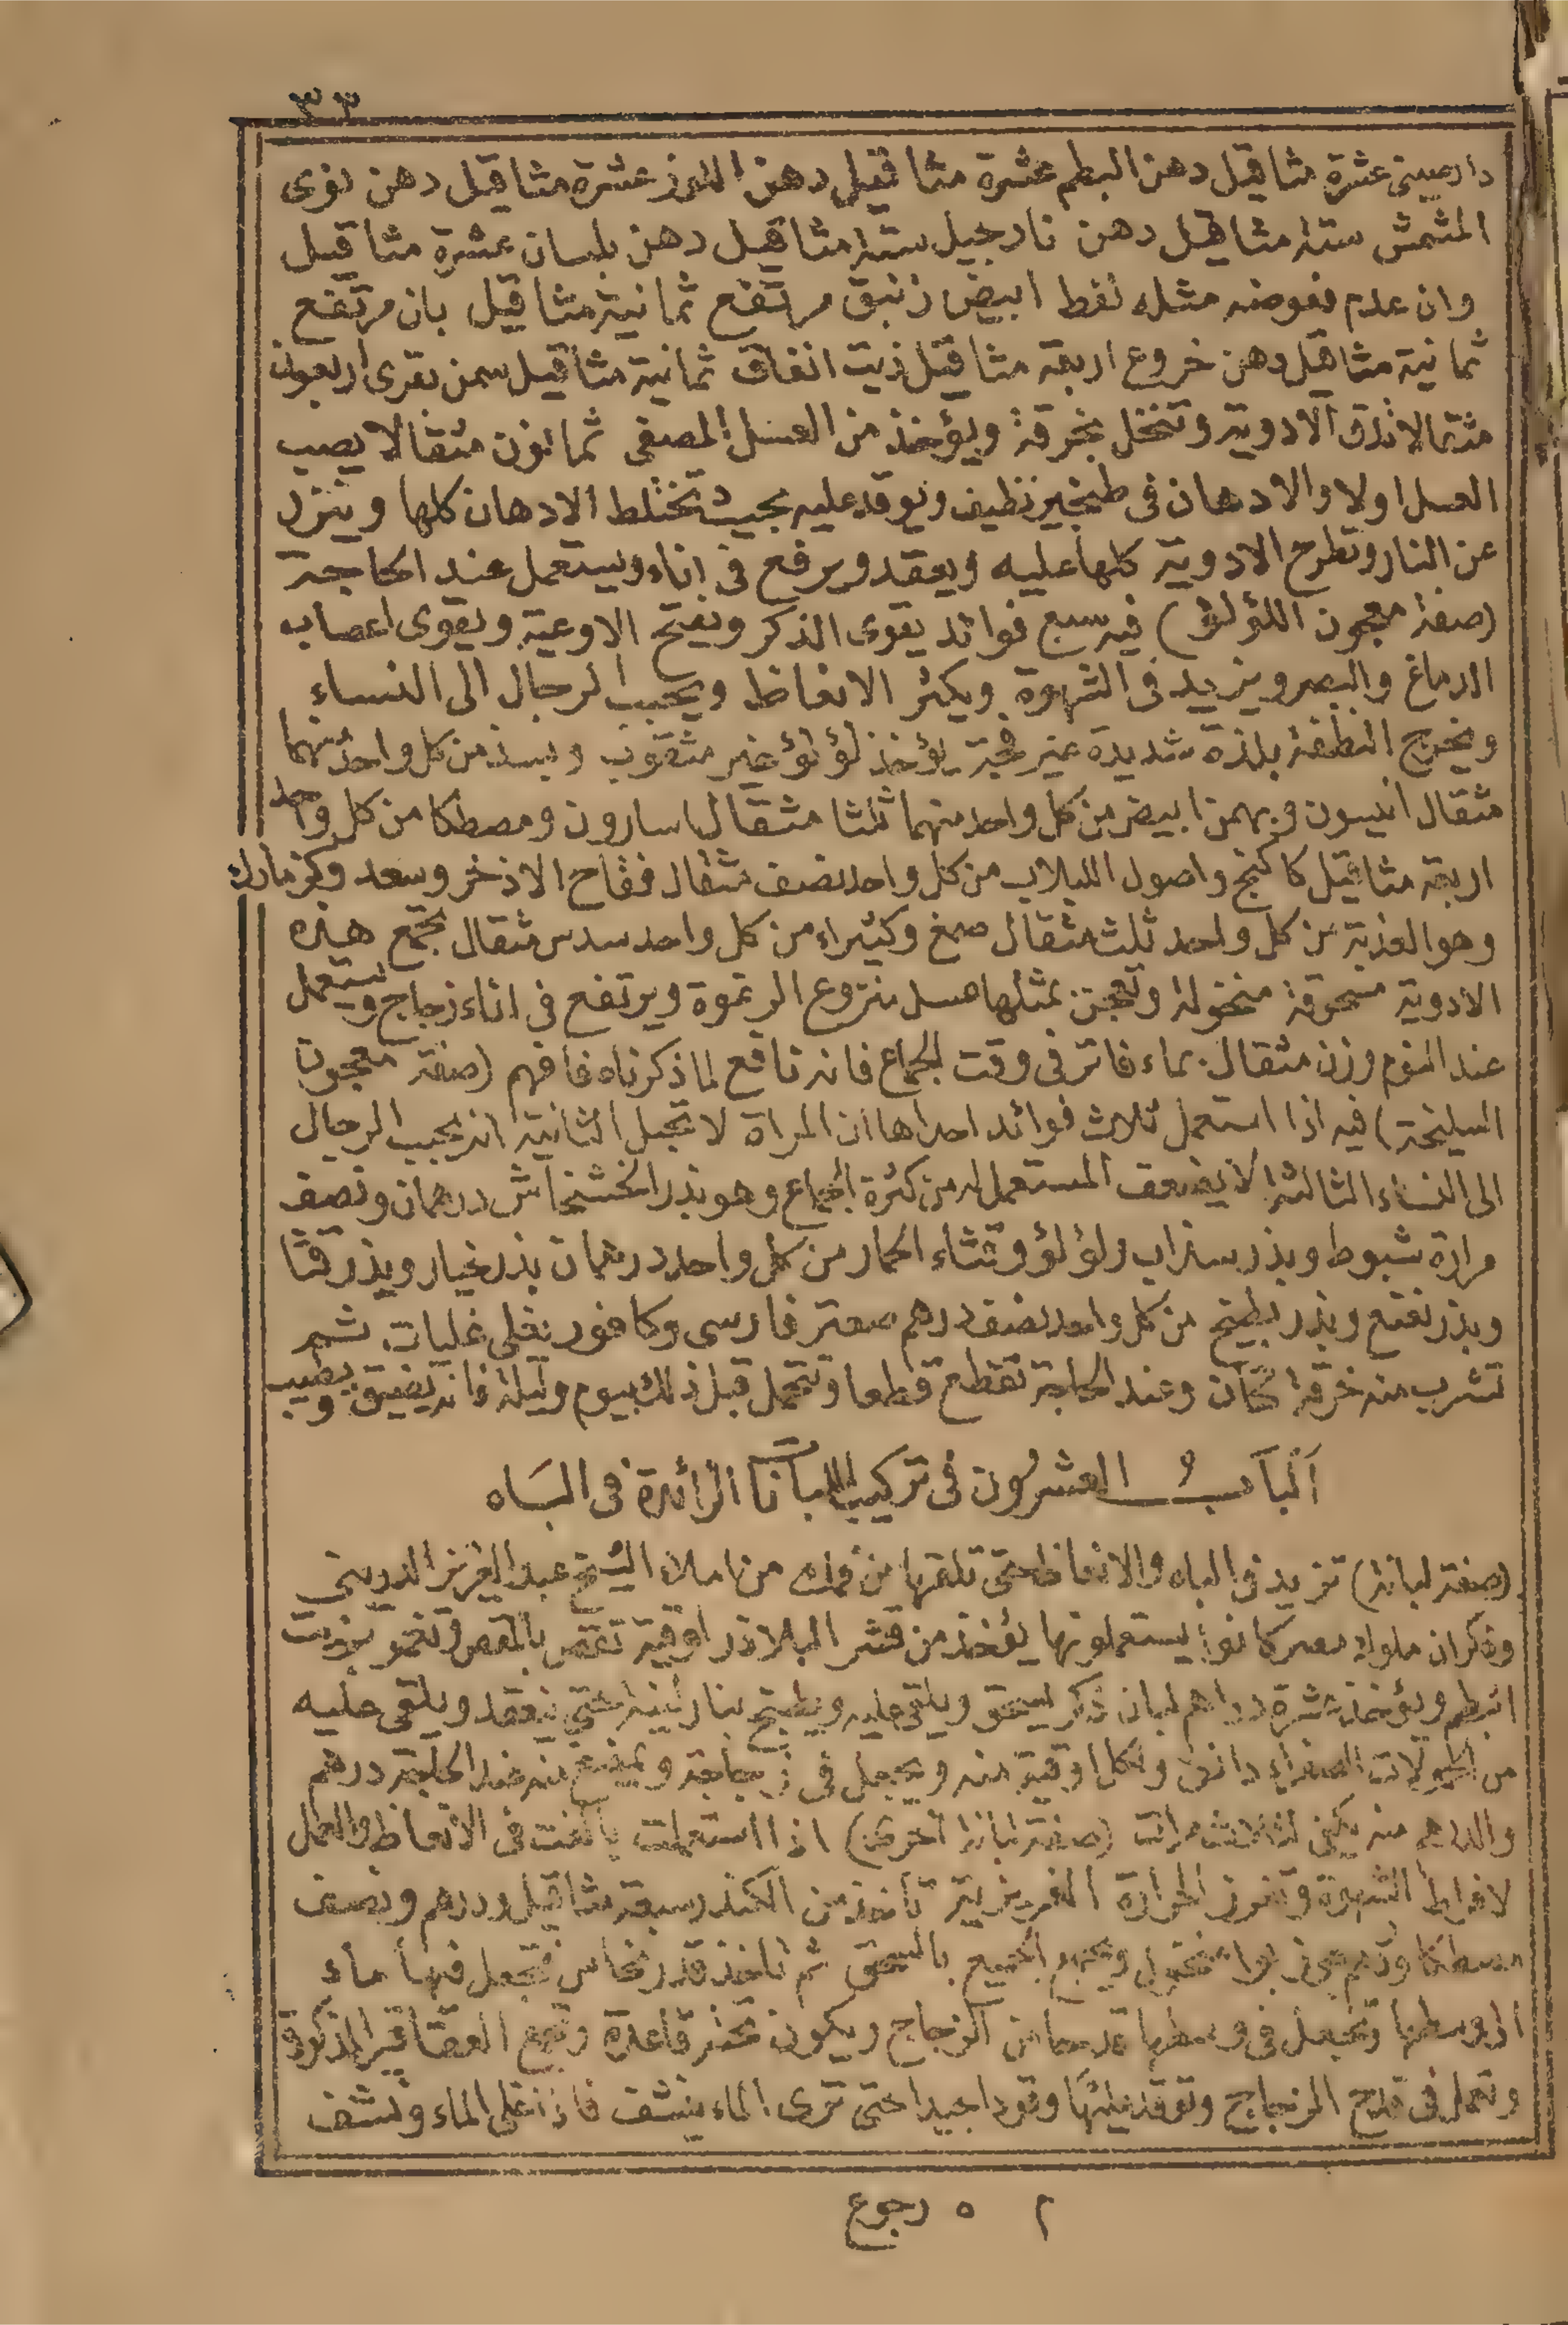 ٣٣
دارصينى عشرة مثاقيل دهن البطم عشرة مثاقيل دهن اللوز عشرة مثاقيل دهن نوى
المشمش ستة مثاقيل دهن نارجيل ستة مثاقيل دهن بلسان عشرة مثاقيل
وان عدم فعوضه مثله نفط ابيض زنبق مرتفع ثمانية مثاقيل بان مرتفع
ثمانية مثاقيل دهن خروع اربعة مثاقيل زيت انفاق ثمانية مثاقيل سمن بقرى اربعون
مثقالا تدق الادوية وتنخل بخرقة ويؤخذ من العسل المصفى ثمانون مثقالا يصب
العسل اولا والادهان فى طنجير نظيف ويوقد عليه بحيث تختلط الادهان كلها وينزل
عن النار وتطرح الادوية كلها عليه ويعقد ويرفع فى اناء ويستعمل عند الحاجة
(صفة معجون اللؤلؤ) فيه سبع فوائد يقوى الذكر ويفتح الاوعية ويقوى اعصاب
الدماغ والبصر ويزيد فى الشهوة ويكثر الانعاظ ويحبب الرجال الى النساء
ويخرج النطفة بلذة شديدة غير فجة يؤخذ لؤلؤ غير مثقوب وبسد من كل واحد منهما
مثقال انيسون وبهمن ابيض من كل واحد منهما ثلثا مثقال اسارون ومصطكا من كل واحد
اربعة مثاقيل كاكنج واصول اللبلاب من كل واحد نصف مثقال فقاح الاذخر وسعد وكزمازك
وهو العذبة من كل واحد ثلث مثقال صمغ وكثيراء من كل واحد سدس مثقال تجمع هذه
الادوية مسحوقة منخولة وتعجن بمثلها عسل منزوع الرغوة ويرتفع فى اناء زجاج ويستعمل
عند النوم وزن مثقال بماء فاتر فى وقت الجماع فانه نافع لما ذكرناه فافهم (صفة معجون
السليخة) فيه اذا استعمل ثلاث فوائد احداها ان المراة لا تحبل الثانية انه يحبب الرجال
الى النساء الثالثة لا يضعف المستعمل له من كثرة الجماع وهو بذر الخشخاش درهمان ونصف
مرارة شبوط وبذر سذاب ولؤلؤ وقثاء الحمار من كل واحد درهمان بذر خيار وبذر قثا
وبذر نعنع وبذر بطيخ من كل واحد نصف درهم صعتر فارسى وكافور يغلى غليات ثم
تشرب منه خرقة كتان وعند الحاجة تقطع قطعا وتتحمل قبل ذلك بيوم وليلة فانه يضيق ويطيب
اَلْبَابُ العشرُون فى تركيب اللبانات الزائدة فى البَاه
(صفة لبانة) تزيد فى الباه والانعاظ حتى تلقيها من فمك من املاء الشيخ عبد العزيز الديرينى
وذكر ان ملوك مصر كانوا يستعملونها يؤخذ من قشر البلاذر اوقية تقص بالمقص وتغمر بزيت
البطم ويؤخذ عشرة دراهم لبان ذكر يسحق ويلقى عليه ويطبخ بنار لينة حتى ينعقد ويلقى عليه
من الصفراء دانق ولكل اوقية منه ويجعل فى زجاجة ويمضغ منه عند الحاجة درهم
والدرهم منه يكفى لثلاث مرات (صفة لبانة اخرى) اذا استعملت بالغت فى الانعاظ والعمل
لافراط الشهوة وتقوى الحرارة الغريزية تاخذ من الكندر سبعة مثاقيل ودرهم ونصف
مصطكا ودرهم جوز بوا منخول ويجمع الجميع بالسحق ثم تاخذ قدر نحاس فتجعل فيها ماء
الى وسطها وتجعل فى وسطها قدحا من الزجاج ويكون تحته قاعدة وتجمع العقاقير المذكورة
وتعمل فى قدح الزجاج وتوقد عليها وقودا جيدا حتى ترى الماء ينشف فاذا غلى الماء ونشف
٢ ٥ رجوع